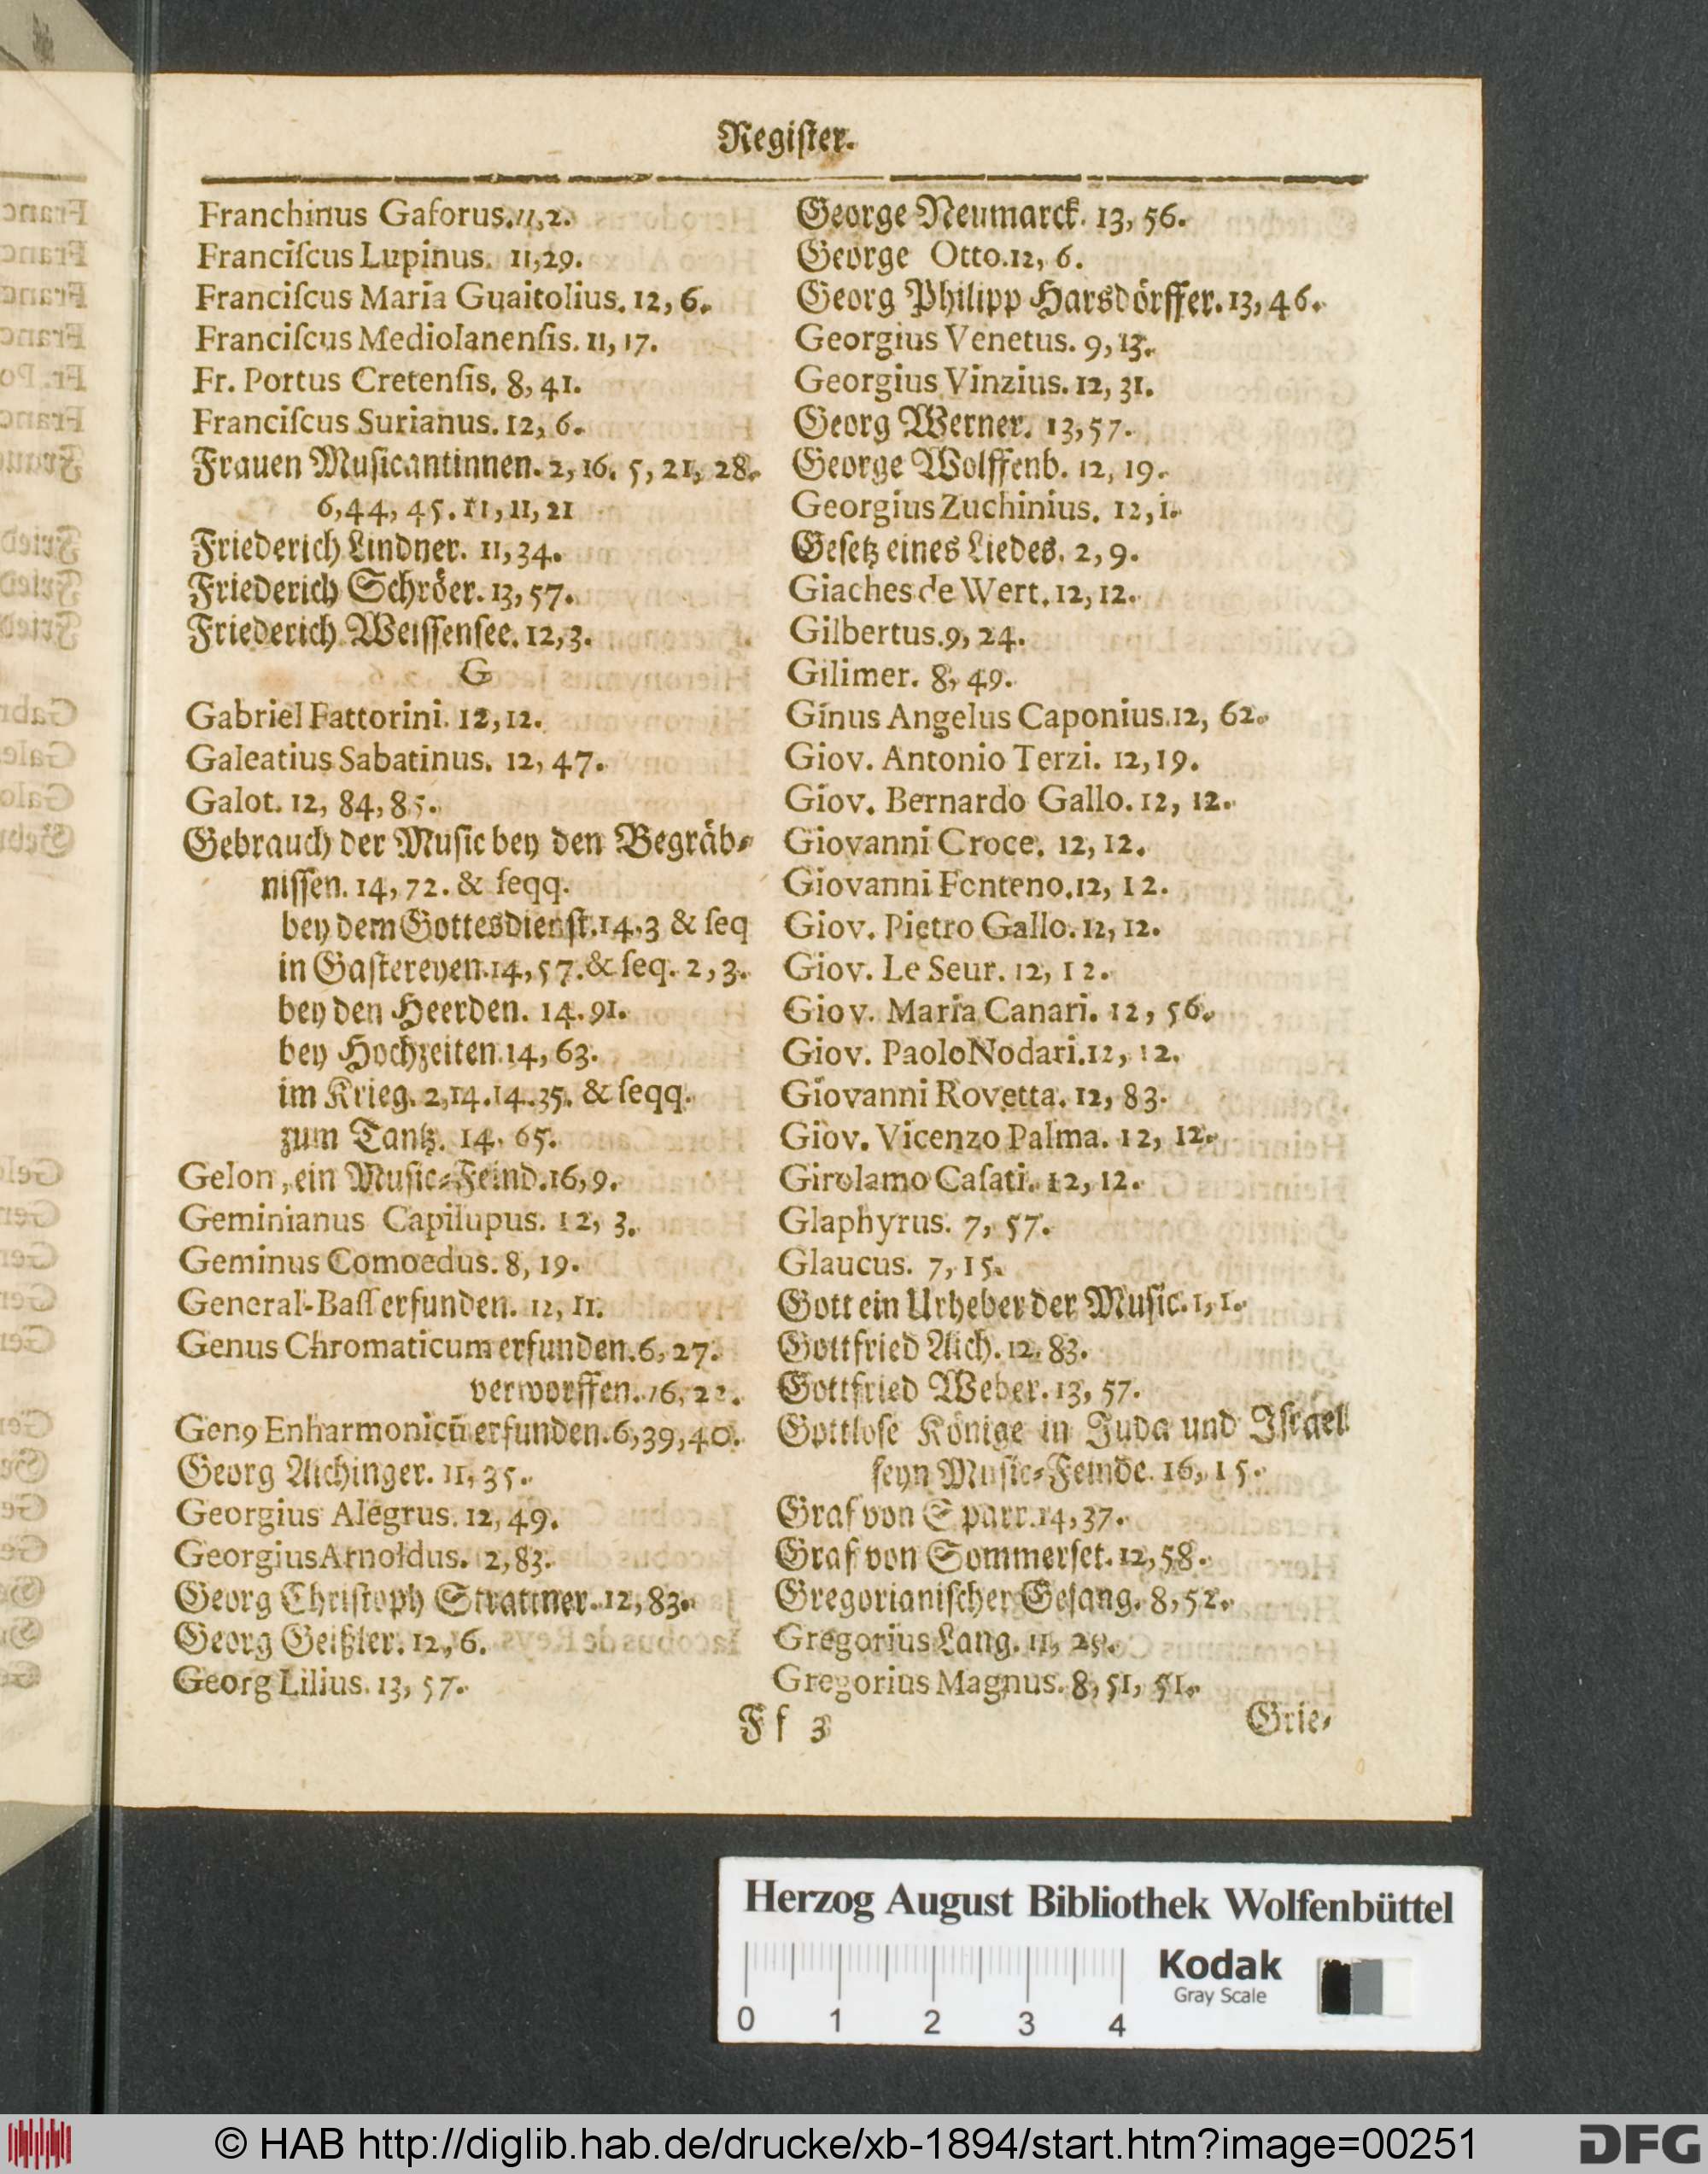 Register.
Franchinus Gaforus. 11, 2.
Franciſcus Lupinus. 11, 29.
Franciſcus Maria Guaitolius. 12, 6.
Franciſcus Mediolanenſis. 11, 17.
Fr. Portus Cretenſis. 8, 41.
Franciſcus Surianus. 12, 6.
Frauen Muſicantinnen. 2, 16. 5, 21, 28.
6, 44, 45. 11, 11, 21
Friederich Lindner. 11, 34.
Friederich Schröer. 13, 57.
Friederich Weiſſenſee. 12, 3.
G
Gabriel Fattorini. 12, 12.
Galeatius Sabatinus. 12, 47.
Galot. 12, 84, 85.
Gebrauch der Muſic bey den Begräb⸗
niſſen. 14, 72. & ſeqq.
bey dem Gottesdienſt. 14. 3 & ſeq
in Gaſtereyen. 14, 57. & ſeq. 2, 3.
bey den Heerden. 14. 91.
bey Hochzeiten. 14, 63.
im Krieg. 2, 14. 14. 35. & ſeqq.
zum Tantz. 14. 65.
Gelon, ein Muſic⸗Feind. 16, 9.
Geminianus Capilupus. 12, 3.
Geminus Comoedus. 8, 19.
General-Baſſ erfunden. 12, 11.
Genus Chromaticum erfunden. 6, 27.
verworffen. 16, 22.
Genꝰ Enharmonicū erfunden. 6, 39, 40.
Georg Aichinger. 11, 35.
Georgius Alegrus. 12, 49.
Georgius Arnoldus. 12, 83.
Georg Chriſtoph Strattner. 12, 83.
Georg Geißler. 12, 6.
Georg Lilius. 13, 57.
George Neumarck. 13, 56.
George Otto. 12, 6.
Georg Philipp Harsdörffer. 13, 46.
Georgius Venetus. 9, 13.
Georgius Vinzius. 12, 31.
Georg Werner. 13, 57.
George Wolffenb. 12, 19.
Georgius Zuchinius. 12, 1.
Geſetz eines Liedes. 2, 9.
Giaches de Wert. 12, 12.
Gilbertus. 9, 24.
Gilimer. 8, 49.
Ginus Angelus Caponius. 12, 62.
Giov. Antonio Terzi. 12, 19.
Giov. Bernardo Gallo. 12, 12.
Giovanni Croce. 12, 12.
Giovanni Fonteno. 12, 12.
Giov. Pietro Gallo. 12, 12.
Giov. Le Seur. 12, 12.
Giov. Maria Canari. 12, 56.
Giov. Paolo Nodari. 12, 12.
Giovanni Rovetta. 12, 83.
Giov. Vicenzo Palma. 12, 12.
Girolamo Caſati. 12, 12.
Glaphyrus. 7, 57.
Glaucus. 7, 15.
Gott ein Urheber der Muſic. 1, 1.
Gottfried Aich. 12, 83.
Gottfried Weber. 13, 57.
Gottloſe Könige in Juda und Iſrael
ſeyn Muſic⸗Feinde. 16, 15.
Graf von Sparr. 14, 37.
Graf von Sommerſet. 12, 58.
Gregorianiſcher Geſang. 8, 52.
Gregorius Lang. 11, 29.
Gregorius Magnus. 8, 51, 51.
Ff 3
Grie⸗
Herzog August Bibliothek Wolfenbüttel
Kodak
Gray Scale
0 1 2 3 4
© HAB http://diglib.hab.de/drucke/xb-1894/start.htm?image=00251
DFG